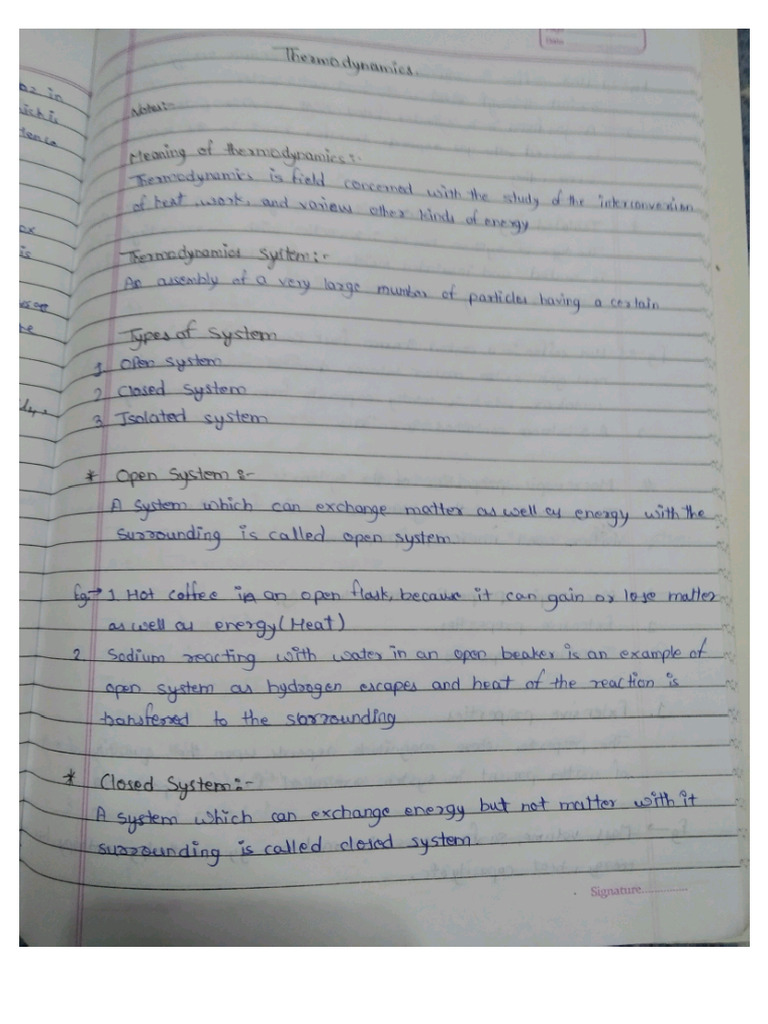 Thermodynamics.
Notes:-
Meaning of thermodynamics:-
Thermodynamics is field concerned with the study of the interconversion
of heat, work, and various other kinds of energy
Thermodynamics System:-
An assembly of a very large number of particles having a certain
Types of System
1. Open system
2 Closed System
3 Isolated system
* Open System:-
A System which can exchange matter as well as energy with the
surrounding is called open system
Eg→ 1. Hot coffee in an open flask, because it can gain or lose matter
as well as energy (Heat)
2. Sodium reacting with water in an open beaker is an example of
open system as hydrogen escapes and heat of the reaction is
transferred to the storrounding
* Closed System:-
A system which can exchange energy but not matter with it
surrounding is called closed system
Signature..............
oz in
ich is
tence
ox
is
re
Date